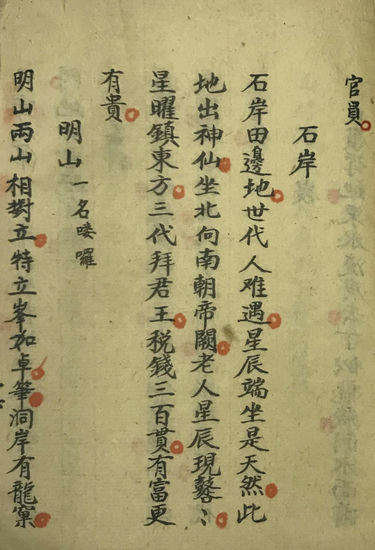 官員
石岸
石岸田邊地世代人难遇星辰端坐是天然此
地出神仙坐北向南朝帝闕老人星辰現鼕〻
星曜鎮東方三代拜君王税錢三百貫有富更
有貴
明山 一名喽囉
明山兩山相對立特立峯如卓筆洞岸有龍窠